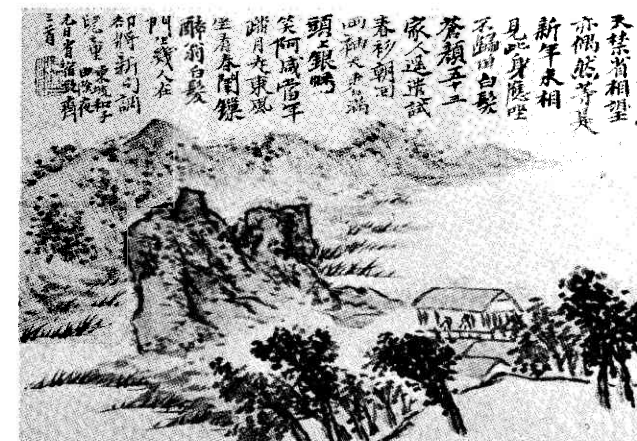 天禁省相望
亦偶然等是
新年未相
見此身應坐
不歸田白髮
蒼顏五十三
家人遙遣試
春衫朝回
兩袖天香滿
頭上銀幡
笑阿咸當年
踏月走東風
坐看春闈鎖
醉翁白髮
門生幾人在
却將新句調
兒童 東坡和子
由除夜
元日省宿致齋
三首